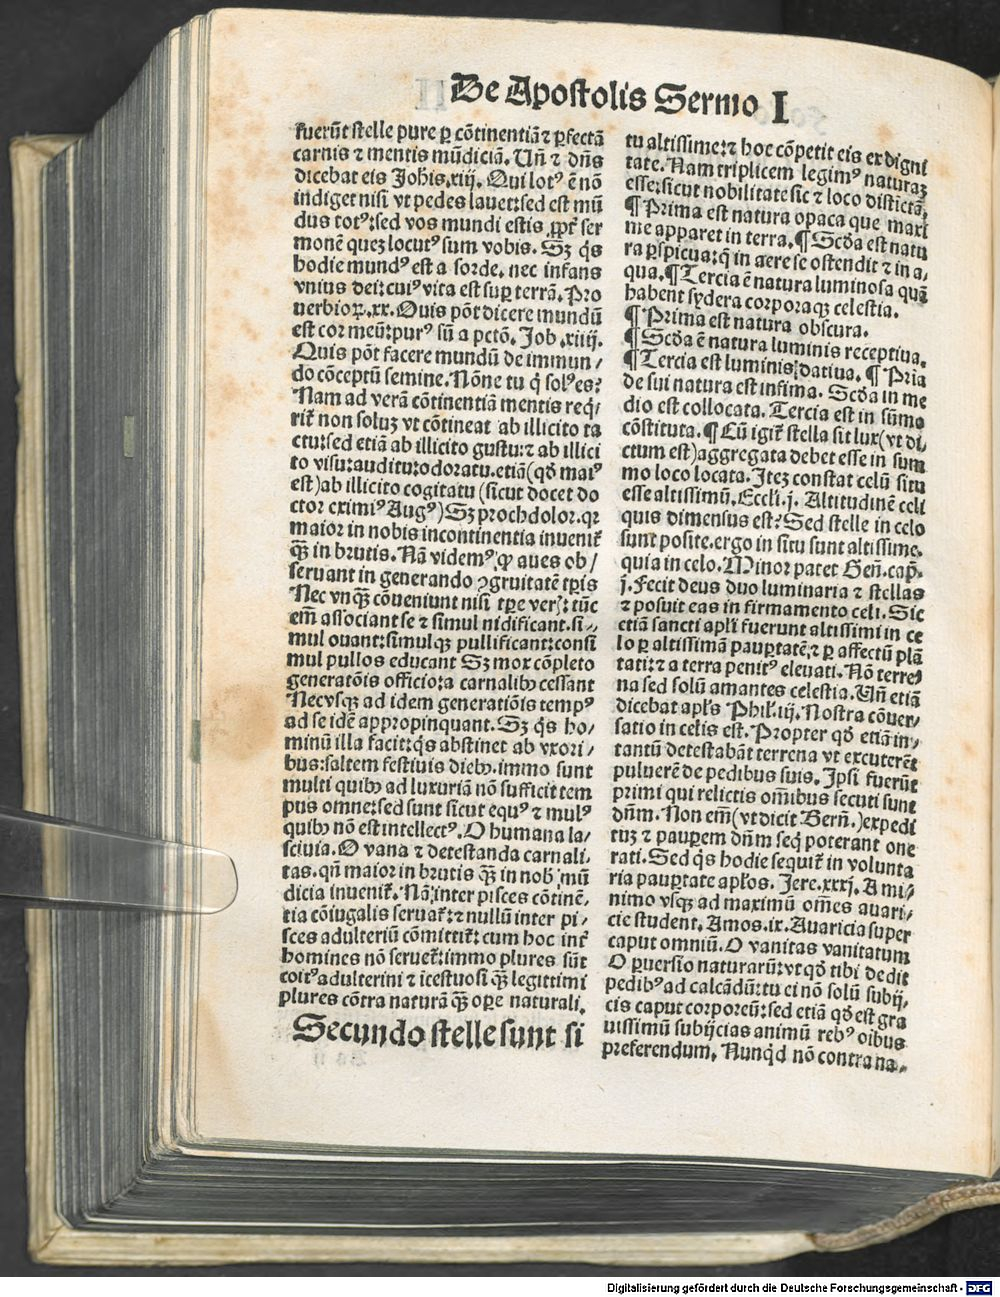 De Apostolis Sermo I
fuerūt stelle pure ꝑ cōtinentiā ⁊ ꝑfectā
carnis ⁊ mentis mūdiciā. Uñ ⁊ dn̄s
dicebat eis Joh̄is.xiij. Qui lotꝰ ē nō
indiget nisi vt pedes lauet:sed est mū
dus totꝰ:sed vos mundi estis ꝓpt̄ ser
monē quez locutꝰ sum vobis. Sz q̄s
hodie mundꝰ est a sorde, nec infans
vnius dei:cuiꝰ vita est suꝑ terrā. Pro
uerbioꝝ.xx. Quis pōt dicere mundū
est cor meū:purꝰ sū a pctō. Job .xiiij.
Quis pōt facere mundū de immun/
do cōceptū semine. Nōne tu q̄ solꝰ es?
Nam ad verā cōtinentiā mentis req̄/
rit̄ non soluz vt cōtineat ab illicito ta
ctu:sed etiā ab illicito gustu:⁊ ab illici
to visu:auditu:odoratu.etiā(qđ maiꝰ
est)ab illicito cogitatu (sicut docet do
ctor eximiꝰ Augꝰ) Sz prochdolor.qꝛ
maior in nobis incontinentia inuenit̄
q̄ꝫ in brutis. Nā videmꝰ ꝙ aues ob/
seruant in generando ꝯgruitatē tꝑis
Nec vnq̄ꝫ cōueniunt nisi tꝑe veris: tūc
em̄ associant se ⁊ simul nidificant.si/
mul ouant:simulqꝫ pullificant:consi
mul pullos educant Sz mox cōpleto
generatōis officio:a carnalibꝫ cessant
Necvsqꝫ ad idem generatiōis tempꝰ
ad se idē appropinquant. Sz q̄s ho/
minū illa facit:q̄s abstinet ab vxori/
bus:saltem festiuis diebꝫ.immo sunt
multi quibꝫ ad luxuriā nō sufficit tem
pus omne:sed sunt sicut equꝰ ⁊ mulꝰ
quibꝫ nō est intellectꝰ. O humana la/
sciuia. O vana ⁊ detestanda carnali/
tas.qn̄ maior in brutis q̄ꝫ in nobꝭ mū
dicia inuenit̄. Nā inter pisces cōtinē/
tia cōiugalis seruat̄:⁊ nullū inter pi/
sces adulteriū cōmittit̄: cum hoc int̄
homines nō seruet̄:immo plures sūt
coitꝰ adulterini ⁊ icestuosi q̄ꝫ legittimi
plures cōtra naturā q̄ꝫ oꝑe naturali.
Secundo stelle sunt si
tu altissime:⁊ hoc cōpetit eis ex digni
tate. Nam triplicem legimꝰ naturaꝫ
esse:sicut nobilitate sic ⁊ loco distictā.
¶ Prima est natura opaca que maxi
me apparet in terra. ¶ Scđa est natu
ra ꝑspicua:q̄ in aere se ostendit ⁊ in a/
qua. ¶ Tercia ē natura luminosa quā
habent sydera corporaqꝫ celestia.
¶ Prima est natura obscura.
¶ Scđa ē natura luminis receptiua.
¶ Tercia est luminis datiua. ¶ Pria
de sui natura est infima. Scđa in me
dio est collocata. Tercia est in sūmo
cōstituta. ¶ Cū igit̄ stella sit lux(vt di/
ctum est)aggregata debet esse in sum
mo loco locata. Itez constat celū situ
esse altissimū. Eccli.j. Altitudinē celi
quis dimensus est? Sed stelle in celo
sunt posite.ergo in situ sunt altissime.
quia in celo. Minor patet Geñ.cap̄.
j. Fecit deus duo luminaria ⁊ stellas
⁊ posuit eas in firmamento celi. Sic
etiā sancti apl̄i fuerunt altissimi in ce
lo ꝑ altissimā pauꝑtatē,⁊ ꝑ affectū plā
tati:⁊ a terra penitꝰ eleuati. Nō terre/
na sed solū amantes celestia. Uñ etiā
dicebat apl̄s Phil̄.iij. Nostra cōuer/
satio in celis est. Propter qđ etiā in/
tantū detestabāt terrena vt excuterēt
puluerē de pedibus suis. Ipsi fuerūt
primi qui relictis om̄ibus secuti sunt
dn̄m. Non em̄(vt dicit Berñ.)expedi
tuz ⁊ pauꝑem dn̄m seq̄ poterant one
rati. Sed q̄s hodie sequit̄ in volunta
ria pauꝑtate apl̄os. Jere.xxxj. A mi/
nimo vsqꝫ ad maximū om̄es auari/
cie student. Amos.ix. Auaricia super
caput omniū. O vanitas vanitatum
O ꝑuersio naturarū:vt qđ tibi dedit
pedibꝰ ad calcādū:tu ei nō solū subij/
cis caput corporeū:sed etiā qđ est gra
uissimū subijcias animū rebꝰ oībus
preferendum. Nunq̄d nō contra na/
Digitalisierung gefördert durch die Deutsche Forschungsgemeinschaft - DFG